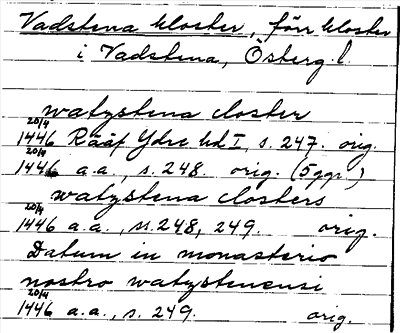 Vadstena kloster, förr kloster
i Vadstena, Österg. l.
watzstena closter
20/4 1446 Rääf Ydre hd I, s. 247. orig.
20/4 1446 a.a., s. 248. orig. (5 ggr.)
watzstena closters
20/4 1446 a.a., ss. 248, 249. orig.
Datum in monasterio
nostro watzstenensi
20/4 1446 a.a., s. 249. orig.